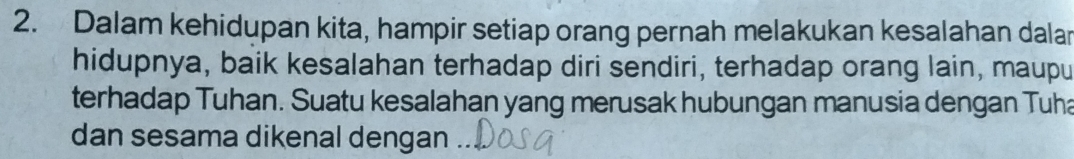 2. Dalam kehidupan kita, hampir setiap orang pernah melakukan kesalahan dalar
hidupnya, baik kesalahan terhadap diri sendiri, terhadap orang lain, maupu
terhadap Tuhan. Suatu kesalahan yang merusak hubungan manusia dengan Tuha
dan sesama dikenal dengan ... Dosa